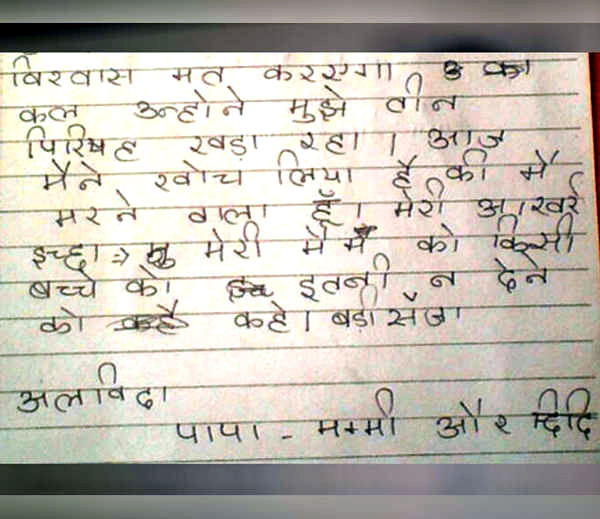 विश्वास मत करएगा 3 का
कल उन्होने मुझे तीन
पिरिषह खड़ा रहा । आज
मैने खोच लिया है की मैं
मरने वाला हूँ । मेरी आखरी
इच्छा :→ मेरी मैंम को किसी
बच्चे को इतनी न देने
को कहे । बड़ी सँजा
अलविदा
पापा - मम्मी और दिदि